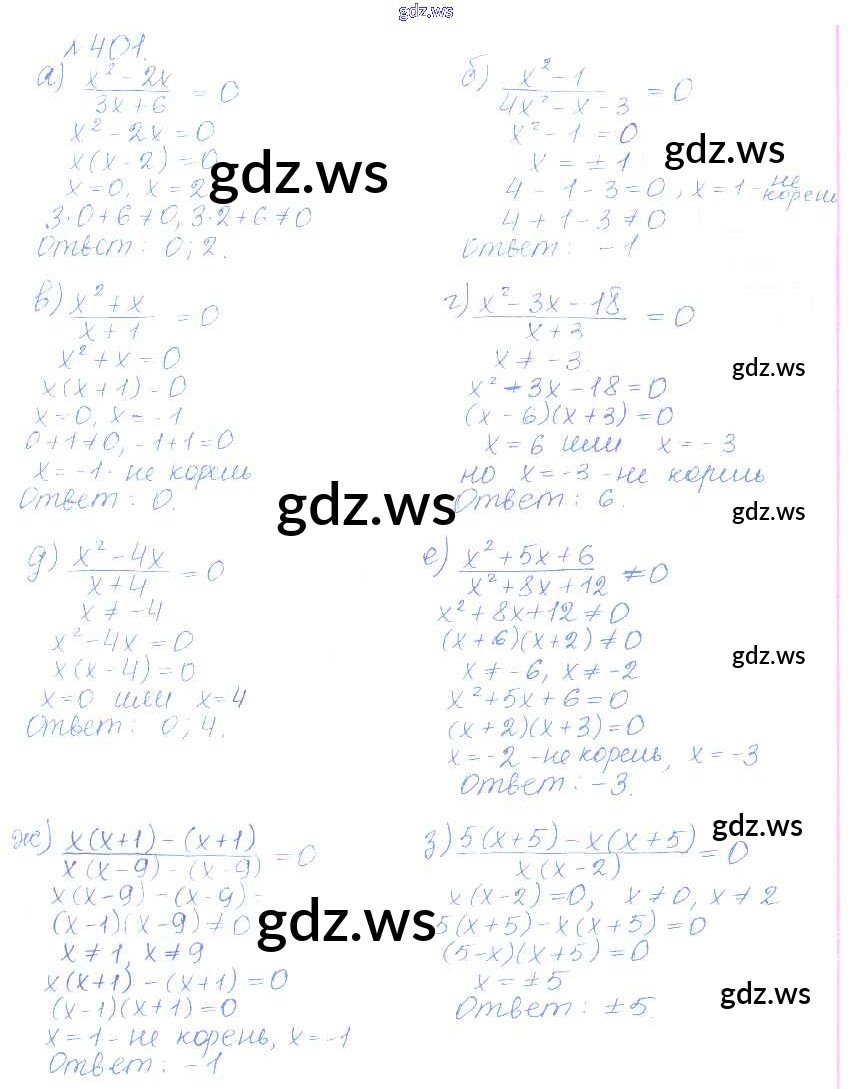 gdz.ws
№ 401.
а) (x² - 2x)/(3x + 6) = 0
x² - 2x = 0
x(x - 2) = 0
x = 0, x = 2
3·0 + 6 ≠ 0, 3·2 + 6 ≠ 0
Ответ: 0; 2.
б) (x² - 1)/(4x² - x - 3) = 0
x² - 1 = 0
x = ± 1
4 - 1 - 3 = 0, x = 1 - не корень
4 + 1 - 3 ≠ 0
Ответ: -1
gdz.ws
gdz.ws
в) (x² + x)/(x + 1) = 0
x² + x = 0
x(x + 1) = 0
x = 0, x = -1
0 + 1 ≠ 0, -1 + 1 = 0
x = -1 - не корень
Ответ: 0.
г) (x² - 3x - 18)/(x + 3) = 0
x ≠ -3
x² - 3x - 18 = 0
(x - 6)(x + 3) = 0
x = 6 или x = -3
но x = -3 - не корень
Ответ: 6.
gdz.ws
gdz.ws
gdz.ws
д) (x² - 4x)/(x + 4) = 0
x ≠ -4
x² - 4x = 0
x(x - 4) = 0
x = 0 или x = 4
Ответ: 0; 4.
е) (x² + 5x + 6)/(x² + 8x + 12) ≠ 0
x² + 8x + 12 ≠ 0
(x + 6)(x + 2) ≠ 0
x ≠ -6, x ≠ -2
x² + 5x + 6 = 0
(x + 2)(x + 3) = 0
x = -2 - не корень, x = -3
Ответ: -3.
gdz.ws
ж) (x(x + 1) - (x + 1))/(x(x - 9) - (x - 9)) = 0
x(x - 9) - (x - 9) =
(x - 1)(x - 9) ≠ 0
x ≠ 1, x ≠ 9
x(x + 1) - (x + 1) = 0
(x - 1)(x + 1) = 0
x = 1 - не корень, x = -1
Ответ: -1
з) (5(x + 5) - x(x + 5))/(x(x - 2)) = 0
x(x - 2) = 0, x ≠ 0, x ≠ 2
5(x + 5) - x(x + 5) = 0
(5 - x)(x + 5) = 0
x = ± 5
Ответ: ± 5.
gdz.ws
gdz.ws
gdz.ws